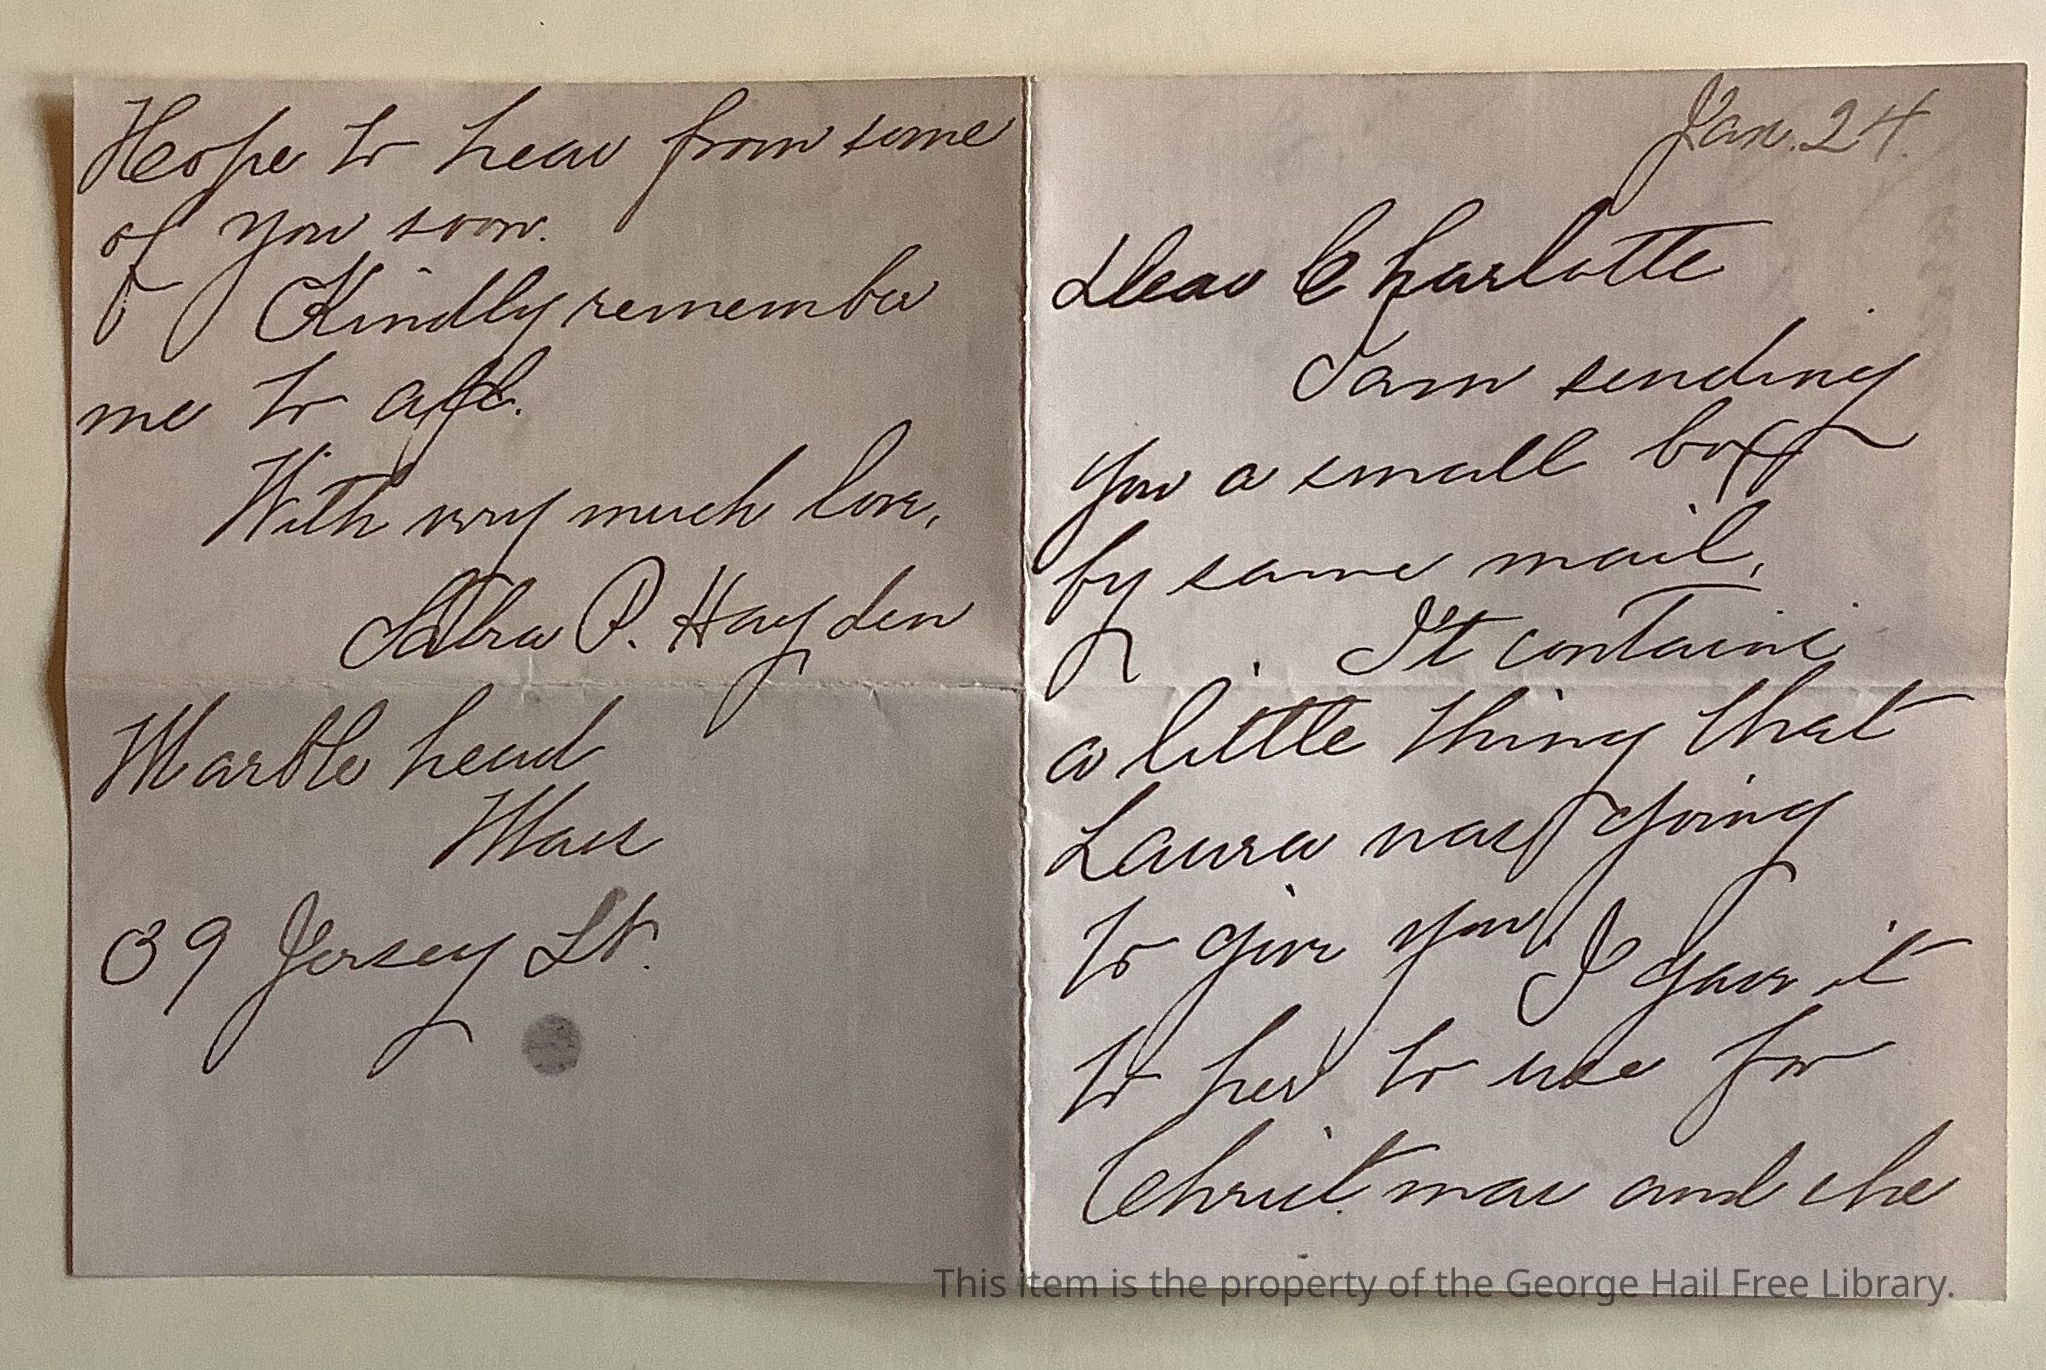 Jan. 24.
Dear Charlotte
I am sending
you a small box
by same mail.
It contains
a little thing that
Laura was going
to give you. I gave it
to her to use for
Christmas and she
Hope to hear from some
of you soon.
Kindly remember
me to all.
With very much love,
P. Hayden
Marblehead
Mass
39 Jersey St.
This item is the property of the George Hail Free Library.